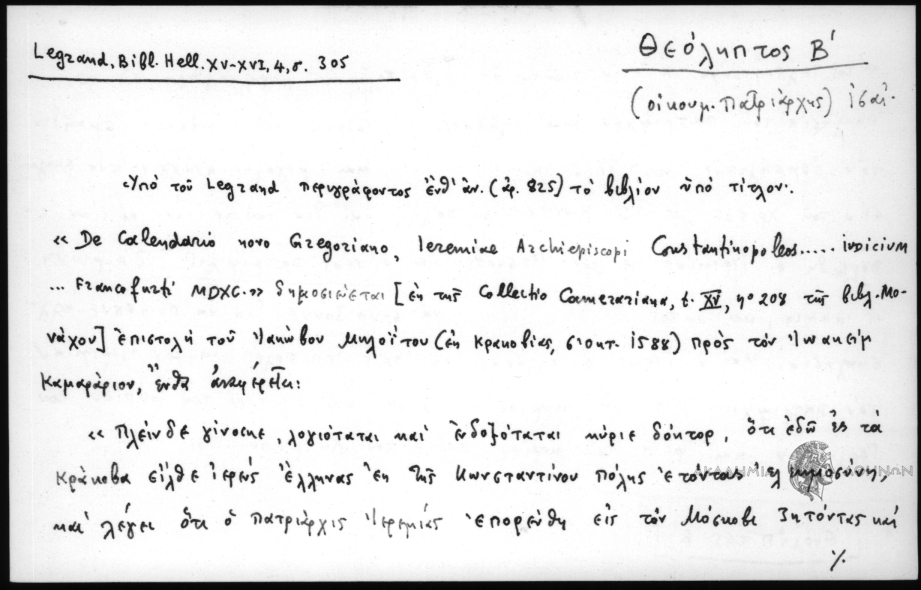 Legrand, Bibl. Hell. XV-XVI, 4, σ. 305
Θεόληπτος Β'
(οἰκουμ. Πατριάρχης)
Ὑπό τοῦ Legrand περιγράφοντος ἔνθ' ἀν. (ἀρ. 825) τό βιβλίον ὑπό τίτλον.
« De Calendario novo Gregoriano, Ieremiae Archiepiscopi Constantinopoleos..... iudicium
... Francofurti MDXC.» δημοσιεύεται [ἐκ τῆς Collectio Camerariana, t. XV, nº 208 τῆς βιβλ. Μο-
νάχου] ἐπιστολή τοῦ Ἰακώβου Μηλοΐτου (ἐκ Κρακοβίας, 6 οκτ. 1588) πρός τόν Ἰωακείμ
Καμαράριον, ἔνθα ἀναφέρεται:
« Πλείν δε γίνοσκε, λογιόταται καί ἐνδοξόταται κύριε δόκτορ, ὅτι ἐδῶ ἐς τά
Κράκοβα εἶλθε ἱερεύς Ἕλληνας ἐκ τῆς Κωνσταντίνου πόλης
ΑΚΑΔΗΜΙΑ ΑΘΗΝΩΝ
καί λέγει ὅτι ὁ πατριάρχις Ἱερεμίας ἐπορεύθη εἰς τόν Μόσκοβι ζητόντας καί
%.